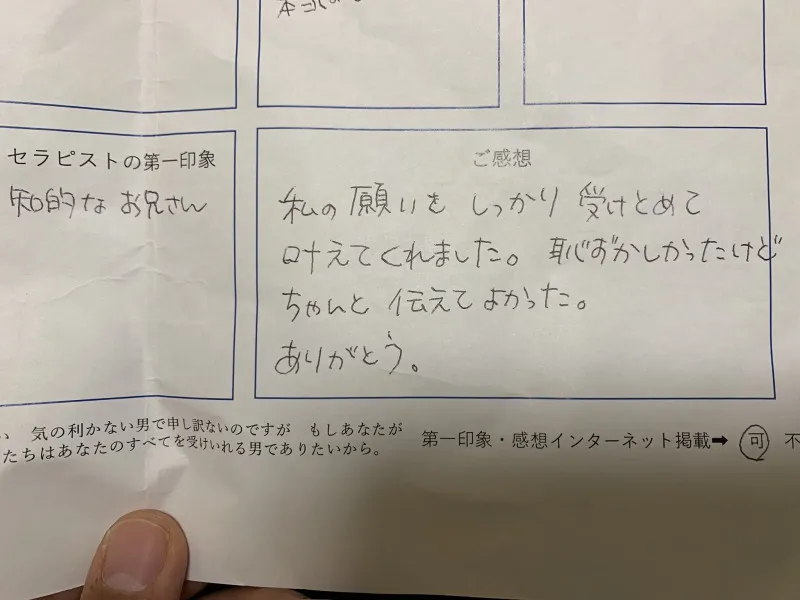 セラピストの第一印象
知的な お兄さん
ご感想
私の 願いを しっかり 受けとめて
叶えてくれました。 恥ずかしかったけど
ちゃんと 伝えて よかった。
ありがとう。
い 気の利かない男で申し訳ないのですが もしあなたが
たちはあなたのすべてを受けいれる男でありたいから。
第一印象・感想インターネット掲載➡ 可 不